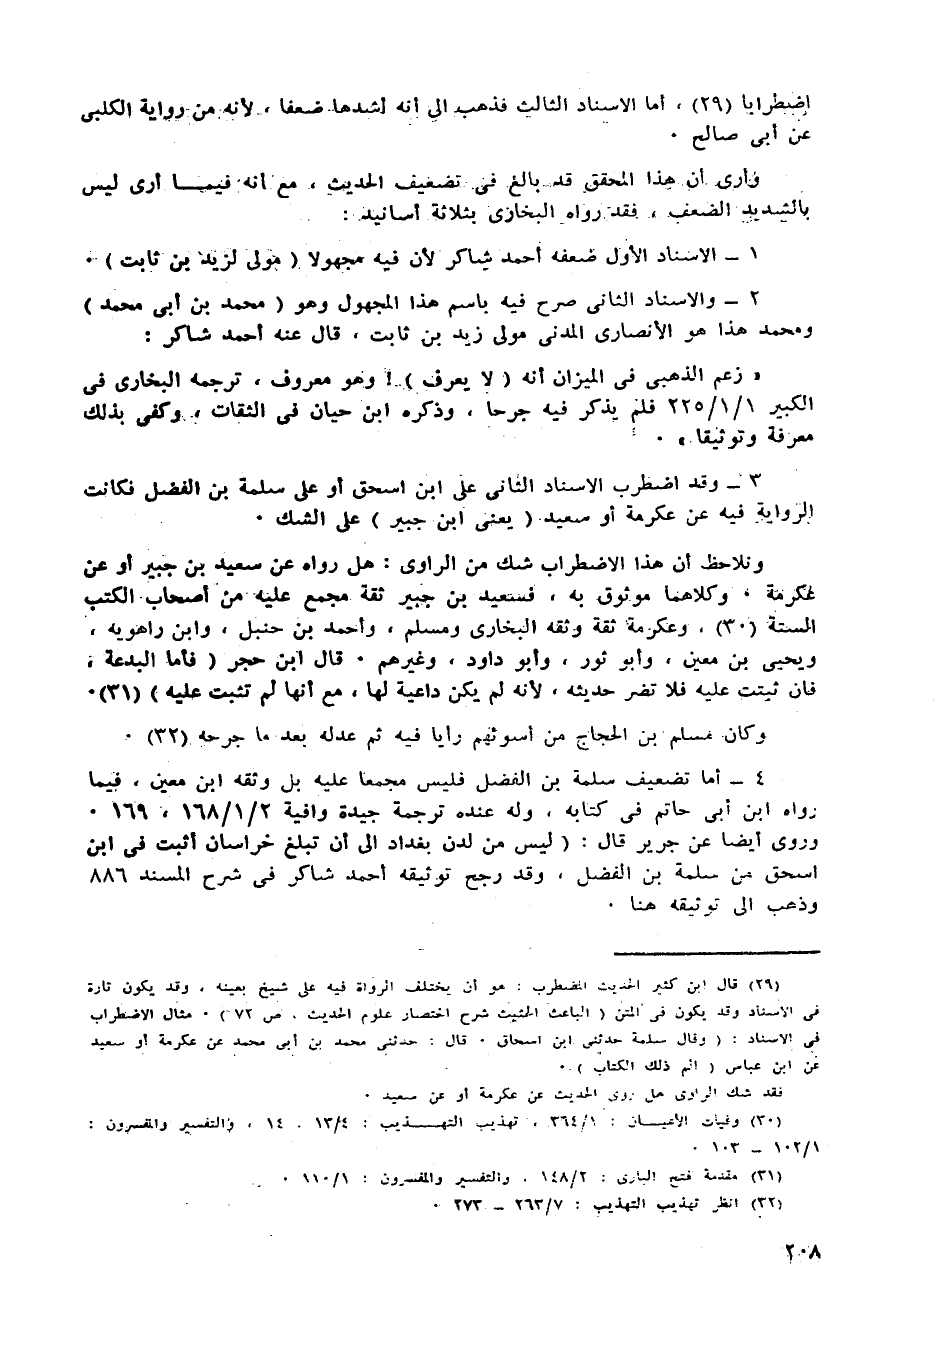 إضطرابا (٢٩) ، أما الاسناد الثالث فذهب الى أنه أشدها ضعفا ، لأنه من رواية الكلبى
عن أبى صالح ٠
وأرى أن هذا المحقق قد بالغ فى تضعيف الحديث ، مع أنه فيما أرى ليس
بالشديد الضعف ، فقد رواه البخارى بثلاثة أسانيد :
١ ــ الاسناد الأول ضعفه أحمد شاكر لأن فيه مجهولا ( مولى لزيد بن ثابت ) ٠
٢ ــ والاسناد الثانى صرح فيه باسم هذا المجهول وهو ( محمد بن أبى محمد )
ومحمد هذا هو الأنصارى المدنى مولى زيد بن ثابت ، قال عنه أحمد شاكر :
« زعم الذهبى فى الميزان أنه ( لا يعرف ) ! وهو معروف ، ترجمه البخارى فى
الكبير ٢٢٥/١/١ فلم يذكر فيه جرحا ، وذكره ابن حيان فى الثقات ، وكفى بذلك
معرفة وتوثيقا » ٠
٣ ــ وقد اضطرب الاسناد الثانى على ابن اسحق أو على سلمة بن الفضل فكانت
الرواية فيه عن عكرمة أو سعيد ( يعنى ابن جبير ) على الشك ٠
ونلاحظ أن هذا الاضطراب شك من الراوى : هل رواه عن سعيد بن جبير أو عن
عكرمة ٠ وكلاهما موثوق به ، فسعيد بن جبير ثقة مجمع عليه من أصحاب الكتب
الستة (٣٠) ، وعكرمة ثقة وثقه البخارى ومسلم ، وأحمد بن حنبل ، وابن راهويه ،
ويحيى بن معين ، وأبو ثور ، وأبو داود ، وغيرهم ٠ قال ابن حجر ( فأما البدعة ،
فان ثبتت عليه فلا تضر حديثه ، لأنه لم يكن داعية لها ، مع أنها لم تثبت عليه ) (٣١)٠
وكان مسلم بن الحجاج من أسوئهم رأيا فيه ثم عدله بعد ما جرحه (٣٢) ٠
٤ ــ أما تضعيف سلمة بن الفضل فليس مجمعا عليه بل وثقه ابن معين ، فيما
رواه ابن أبى حاتم فى كتابه ، وله عنده ترجمة جيدة وافية ١٦٨/١/٢ ، ١٦٩ ٠
وروى أيضا عن جرير قال : ( ليس من لدن بغداد الى أن تبلغ خراسان أثبت فى ابن
اسحق من سلمة بن الفضل ، وقد رجح توثيقه أحمد شاكر فى شرح المسند ٨٨٦
وذهب الى توثيقه هنا ٠
(٢٩) قال ابن كثير الحديث المضطرب : هو أن يختلف الرواة فيه على شيخ بعينه ، وقد يكون تارة
فى الاسناد وقد يكون فى المتن ( الباعث الحثيث شرح اختصار علوم الحديث ، ص ٧٢ ) ٠ مثال الاضطراب
فى الاسناد : ( وقال سلمة حدثنى ابن اسحاق ٠ قال : حدثنى محمد بن أبى محمد عن عكرمة أو سعيد
عن ابن عباس ( الم ذلك الكتاب ) ٠
فقد شك الراوى هل روى الحديث عن عكرمة أو عن سعيد ٠
(٣٠) وفيات الأعيــان : ٣٦٤/١ ، تهذيب التهــذيب : ١٣/٤ ، ١٤ ، والتفسير والمفسرون :
١٠٢/١ ــ ١٠٣ ٠
(٣١) مقدمة فتح البارى : ١٤٨/٢ ، والتفسير والمفسرون : ١١٠/١ ٠
(٣٢) انظر تهذيب التهذيب : ٢٦٣/٧ ــ ٢٧٣ ٠
٢٠٨